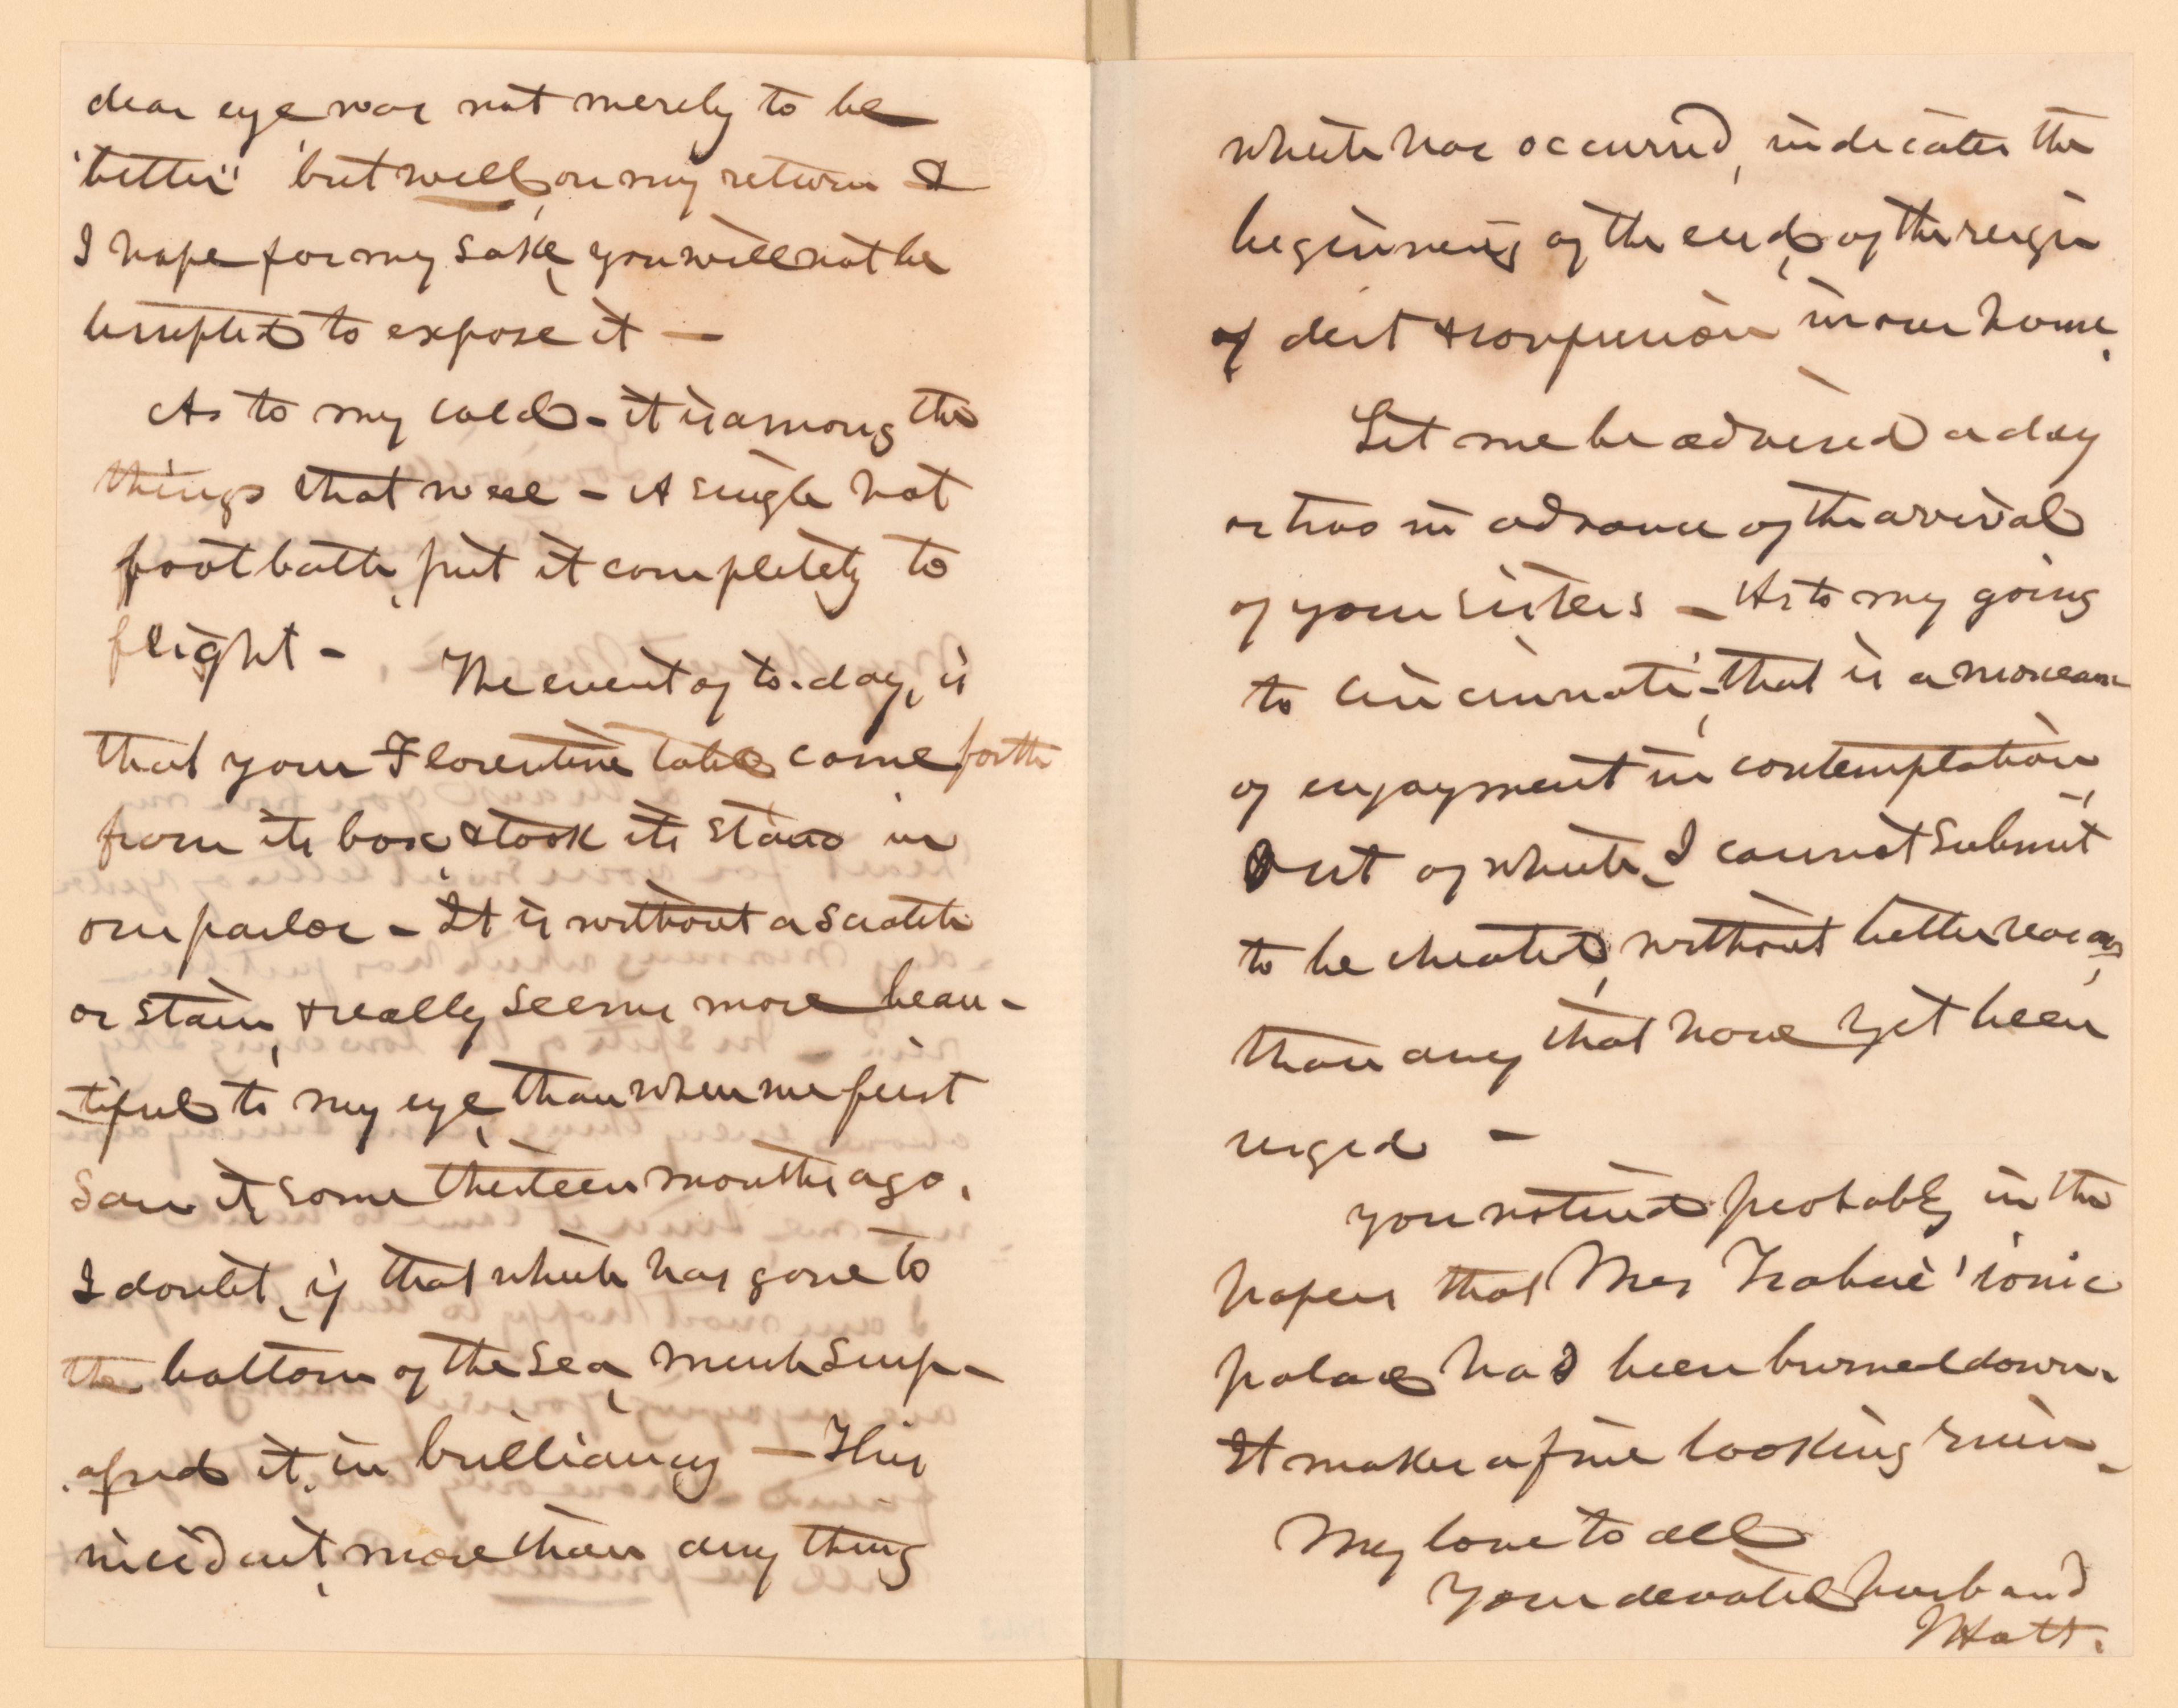 dear eye was not merely to be
"better" but well, on my return &
I hope for my sake, you will not be
tempted to expose it —
As to my cold - it is among the
things that were - A single hot
foot bath, put it completely to
flight -
The event of to-day, is
that your Florentine table came forth
from its box, & took its stand in
our parlor - It is without a scratch
or stain, & really seems more beau-
-tiful to my eye, than when we first
saw it, some thirteen months ago.
I doubt, if that which has gone to
the bottom of the sea, much surp-
assed it, in brilliancy — This
incident, more than any thing
which has occurred, indicates the
beginning of the end, of the reign
of dirt & confusion in our home.
Let me be advised a day
or two in advance of the arrival
of your sisters - As to my going
to Cincinnati, - that is a
of enjoyment in contemplation,
out of which, I cannot submit
to be cheated, without better reasons,
than any that have yet been
urged -
You noticed probably in the
papers that Mrs ionic
palace had been burned down.
It makes a fine looking ruin -
My love to all
Your devoted husband
Hatt.